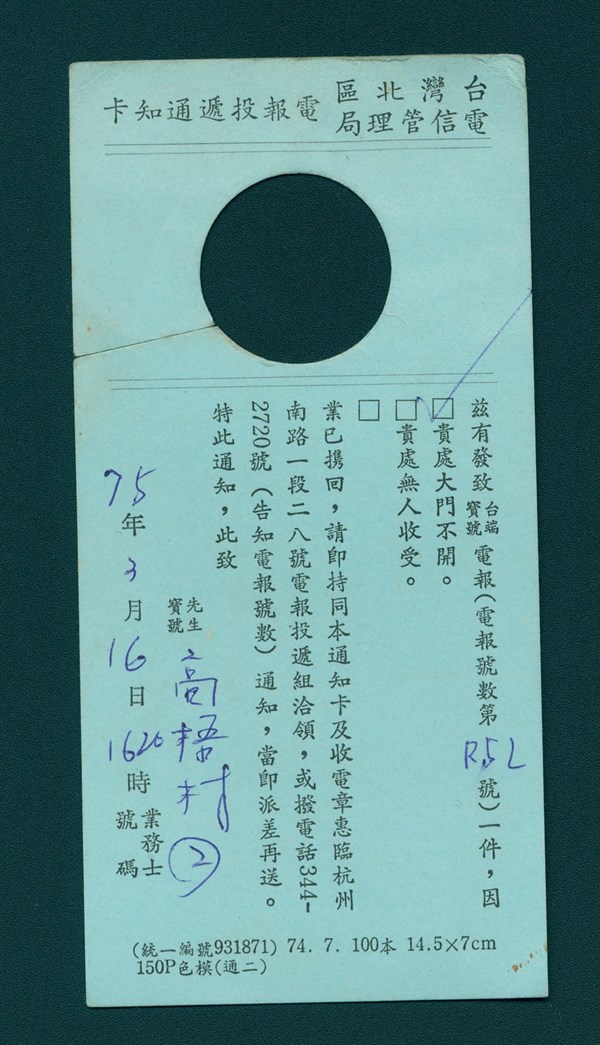 台灣北區
電信管理局
電報投遞通知卡
茲有發致台端寶號電報(電報號數第R52號)一件，因
□貴處大門不開。
□貴處無人收受。
□
業已携回，請即持同本通知卡及收電章惠臨杭州
南路一段二八號電報投遞組洽領，或撥電話344-
2720號（告知電報號數）通知，當即派差再送。
特此通知，此致
先生寶號 高梧村 ②
75年3月16日1620時 業務士號碼
(統一編號931871) 74. 7. 100本 14.5×7cm
150P色模(通二)